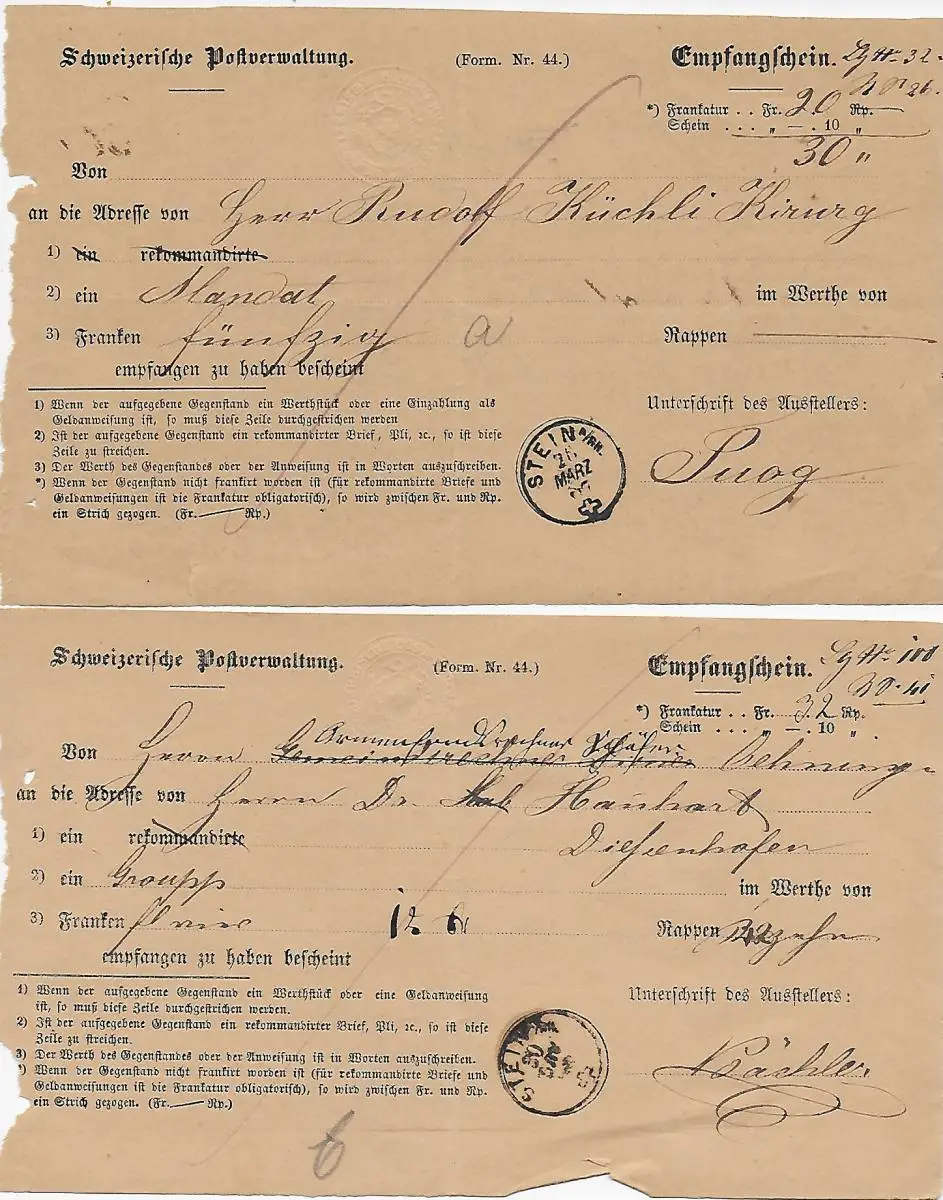 Schweizerische Postverwaltung. (Form. Nr. 44.) Empfangschein. No 32.
*) Frankatur . . Fr. 20 Rp.
Schein . . . „ — . 10 „
30 „
Von
an die Adresse von Herr Rudolf Küchli Kirurg
1) ein rekommandirte
2) ein Mandat im Werthe von
3) Franken fünfzig a Rappen
empfangen zu haben bescheint
1) Wenn der aufgegebene Gegenstand ein Werthstück oder eine Einzahlung als
Geldanweisung ist, so muß diese Zeile durchgestrichen werden
2) Ist der aufgegebene Gegenstand ein rekommandirter Brief, Pli, ꝛc., so ist diese
Zeile zu streichen.
3) Der Werth des Gegenstandes oder der Anweisung ist in Worten auszuschreiben.
*) Wenn der Gegenstand nicht frankirt worden ist (für rekommandirte Briefe und
Geldanweisungen ist die Frankatur obligatorisch), so wird zwischen Fr. und Rp.
ein Strich gezogen. (Fr. Rp.)
Unterschrift des Ausstellers:
STEIN A/RH.
MÄRZ
Puog
Schweizerische Postverwaltung. (Form. Nr. 44.) Empfangschein. No 100
*) Frankatur . . Fr. 32 Rp.
Schein . . . „ — . 10 „
Von Herrn Oehningen
an die Adresse von Herrn Dr. Hanhart
1) ein rekommandirte Dießenhofen
2) ein Groupp im Werthe von
3) Franken Rappen
empfangen zu haben bescheint
1) Wenn der aufgegebene Gegenstand ein Werthstück oder eine Geldanweisung
ist, so muß diese Zeile durchgestrichen werden.
2) Ist der aufgegebene Gegenstand ein rekommandirter Brief, Pli, ꝛc., so ist diese
Zeile zu streichen.
3) Der Werth des Gegenstandes oder der Anweisung ist in Worten auszuschreiben.
*) Wenn der Gegenstand nicht frankirt worden ist (für rekommandirte Briefe und
Geldanweisungen ist die Frankatur obligatorisch), so wird zwischen Fr. und Rp.
ein Strich gezogen. (Fr. Rp.)
Unterschrift des Ausstellers:
STEIN
Bächler.